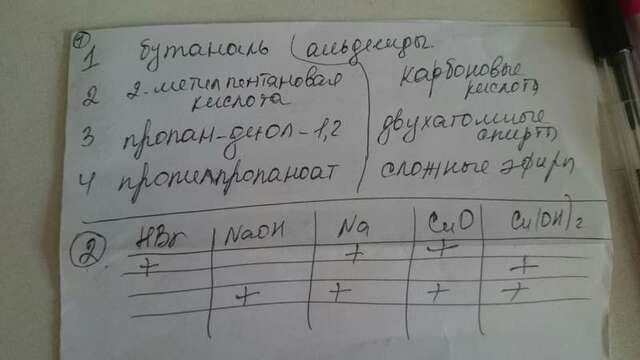 1
1 бутаналь альдегиды.
2 2-метилпентановая кислота карбоновые кислоты
3 пропан-диол-1,2 двухатомные спирты
4 пропилпропаноат сложные эфиры
2
HBr NaOH Na CuO Cu(OH)2
+ +
+ +
+ + + +